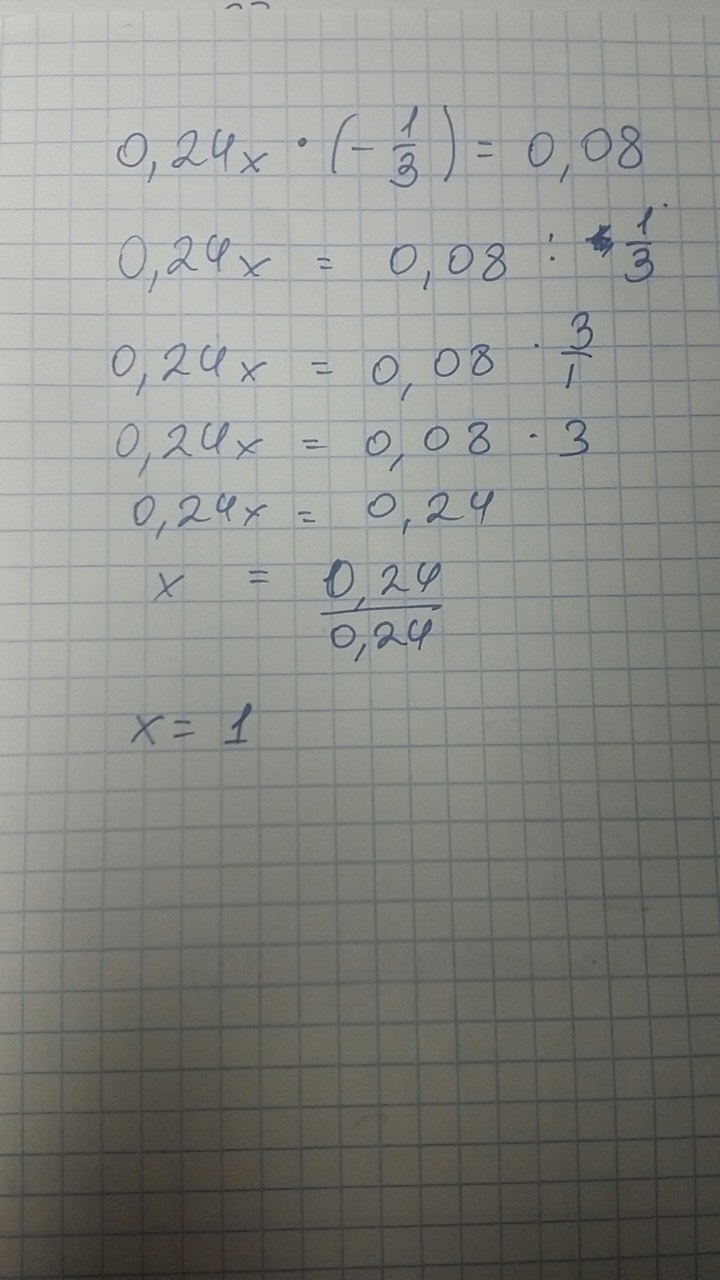 0,24x · (- 1/3) = 0,08
0,24x = 0,08 : 1/3
0,24x = 0,08 · 3/1
0,24x = 0,08 · 3
0,24x = 0,24
x = 0,24/0,24
x = 1